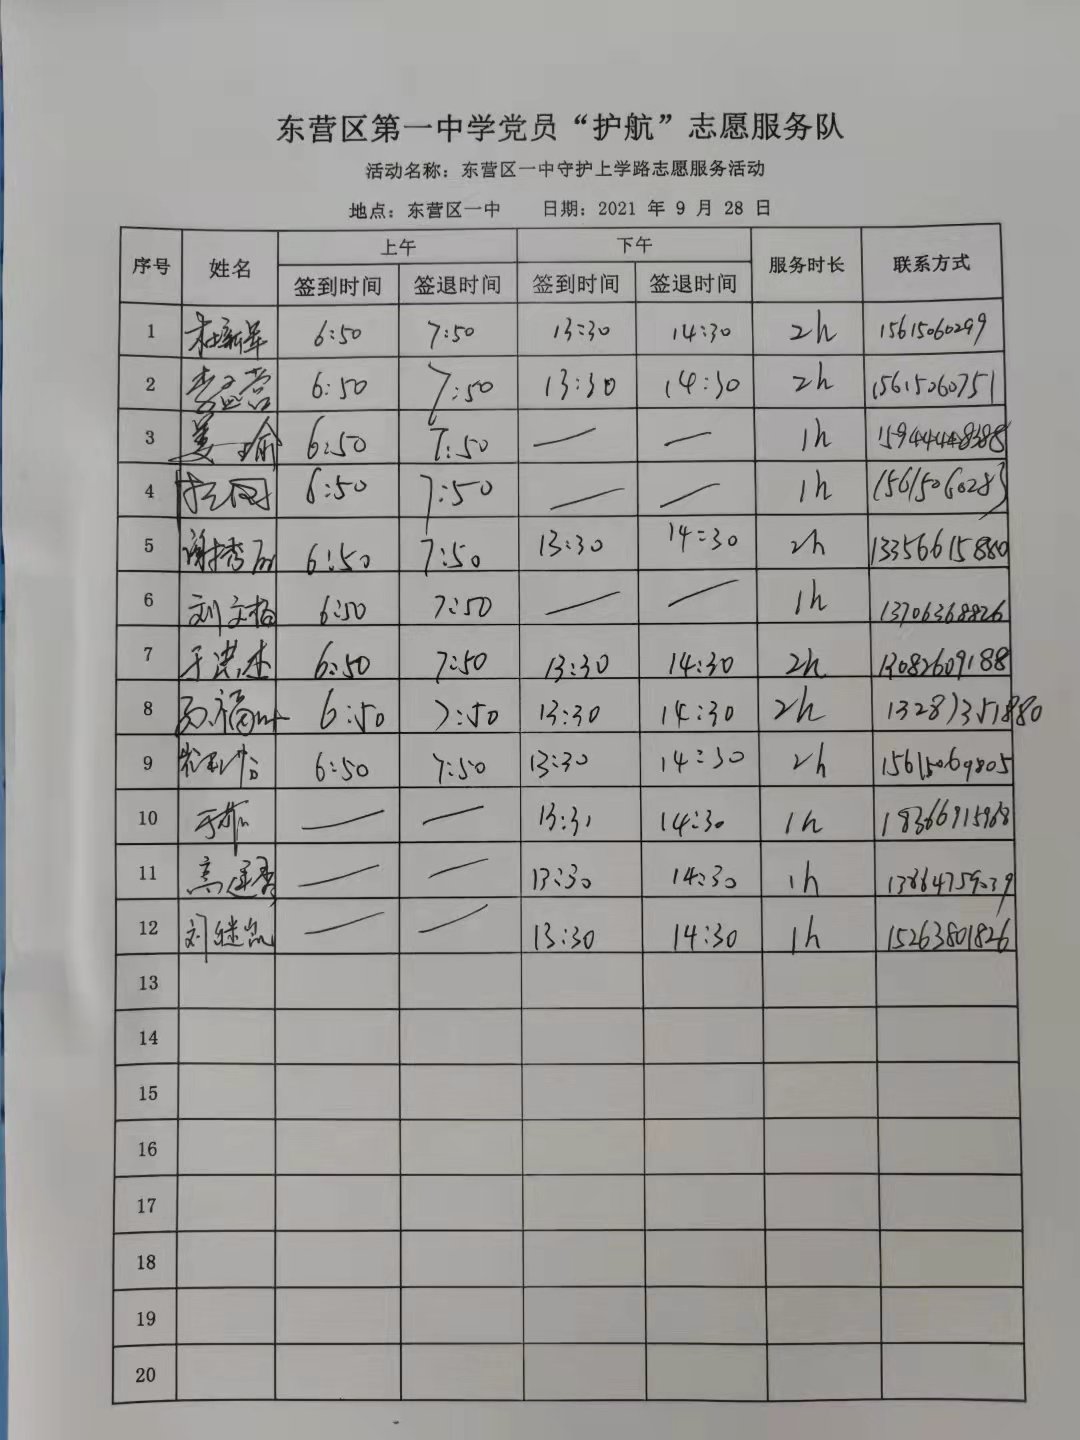 东营区第一中学党员“护航”志愿服务队
活动名称：东营区一中守护上学路志愿服务活动
地点：东营区一中 日期：2021 年 9 月 28 日
序号 姓名 上午 下午 服务时长 联系方式
签到时间 签退时间 签到时间 签退时间
1 6:50 7:50 13:30 14:30 2h 15615060299
2 李盂营 6:50 7:50 13:30 14:30 2h 15615060751
3 姜瑜 6:50 7:50 — — 1h
4 6:50 7:50 — — 1h 15615060283
5 6:50 7:50 13:30 14:30 2h 13356615880
6 刘文格 6:50 7:50 — — 1h 13706368826
7 于洪杰 6:50 7:50 13:30 14:30 2h 13082609188
8 6:50 7:50 13:30 14:30 2h
9 6:50 7:50 13:30 14:30 2h 15615069805
10 — — 13:31 14:30 1h 18366915968
11 高建香 — — 13:30 14:30 1h
12 刘继凯 — — 13:30 14:30 1h 15263801826
13
14
15
16
17
18
19
20